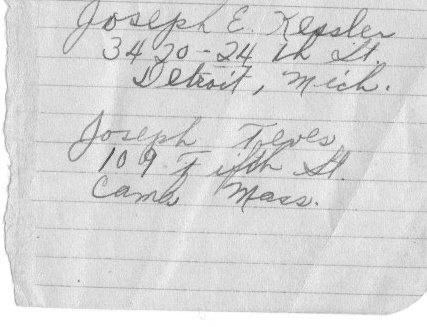 Joseph E. Kessler
3420-24th St.
Detroit, Mich.
Joseph Teves
109 Fifth St.
Camb Mass.